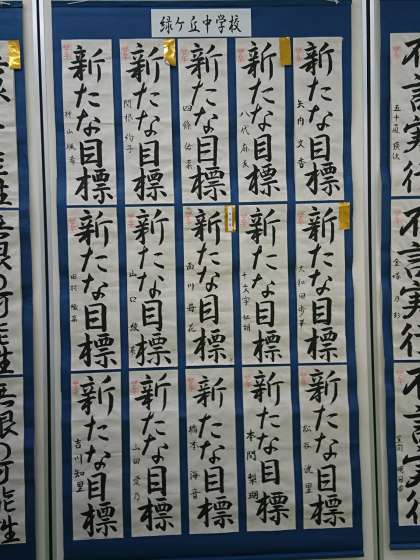 緑ケ丘中学校
新たな目標
矢内文香
新たな目標
八代麻友
新たな目標
四條佑菜
新たな目標
関根絢子
新たな目標
新たな目標
大和田歩華
新たな目標
新たな目標
西川苺花
新たな目標
山口綾
新たな目標
田村
新たな目標
松谷波里
新たな目標
本間梨瑚
新たな目標
橋本海音
新たな目標
山田愛乃
新たな目標
吉川知里
不言実行
五十嵐
不言実行
不言実行
無限の可能性
無限の可能性